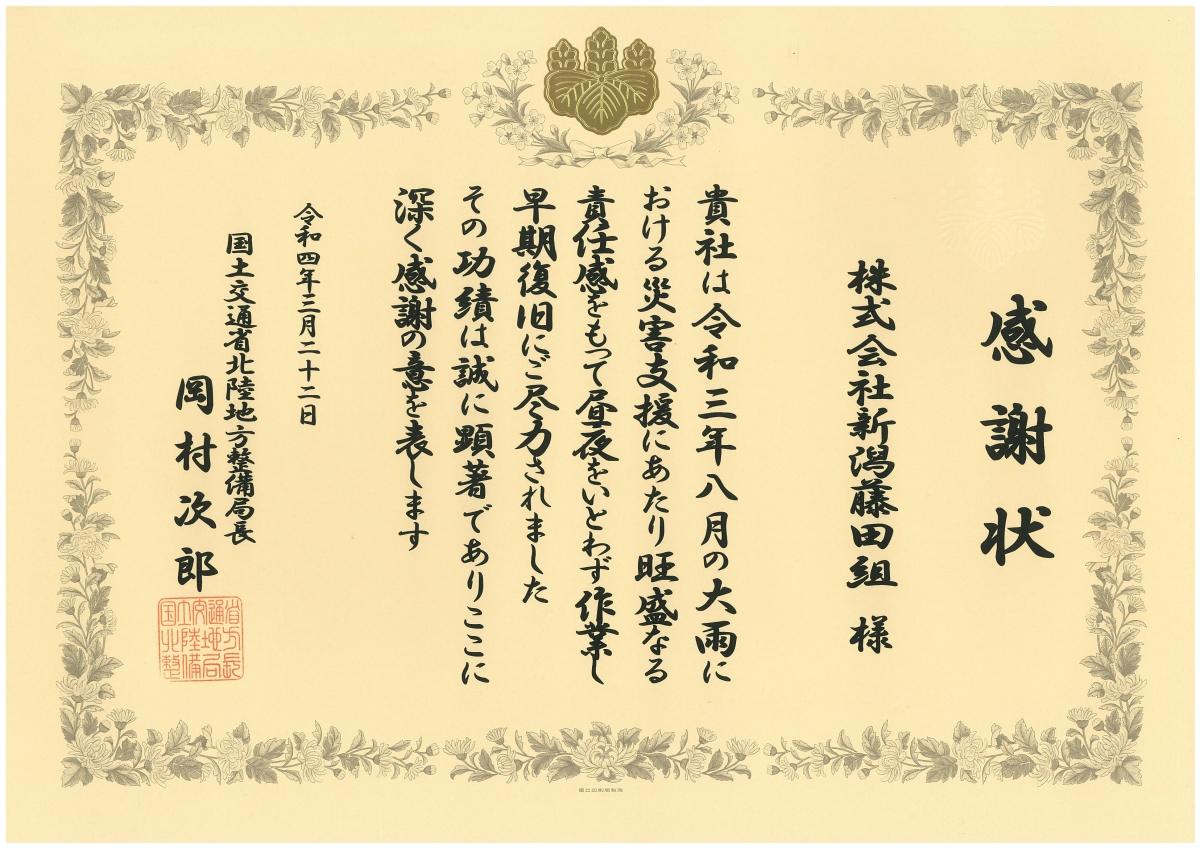 感謝状
株式会社新潟藤田組 様
貴社は令和三年八月の大雨に
おける災害支援にあたり旺盛なる
責任感をもって昼夜をいとわず作業し
早期復旧にご尽力されました
その功績は誠に顕著でありここに
深く感謝の意を表します
令和四年三月二十二日
国土交通省北陸地方整備局長
岡村次郎